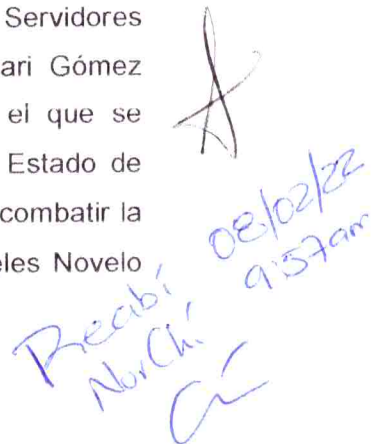 Servidores
ari Gómez
el que se
Estado de
combatir la
eles Novelo
Recibí 08/02/22
9:57am